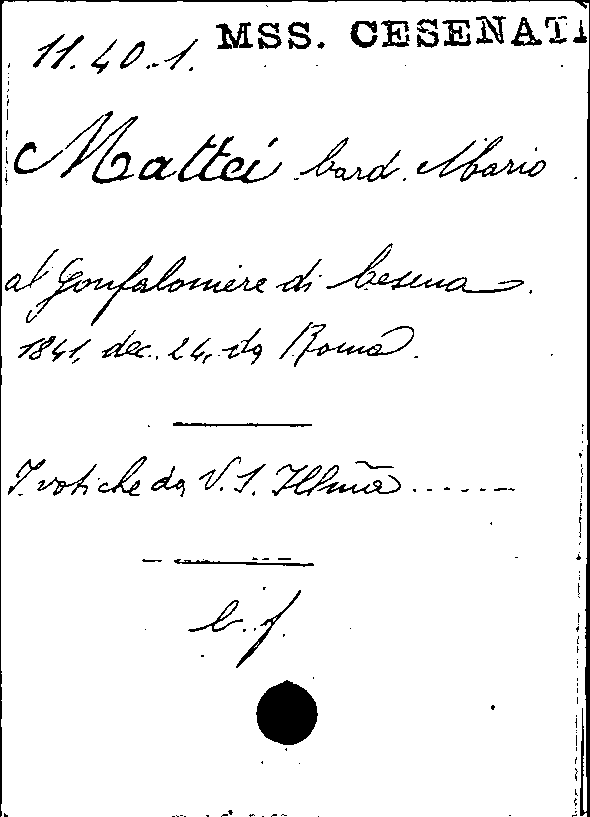 11.40.1. MSS. CESENATI
Mattei Card. Mario
al Gonfaloniere di Cesena.
1841, dec. 24, da Roma.
I voti che da V. S. Illm̃a ......
c. f.